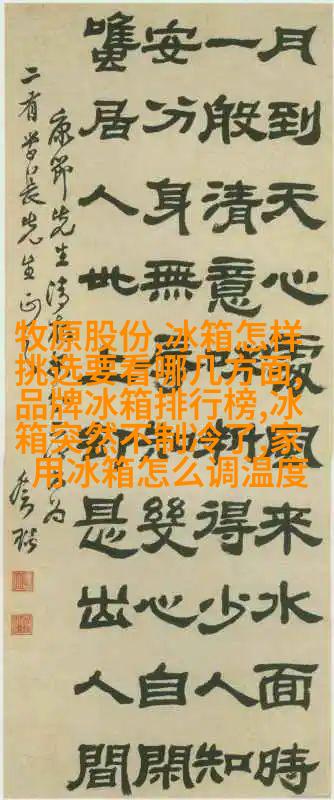 月到天心處風來水面時
一般清意味料得少人知
安分身無辱幾心自閑
雖居人世上却是出人間
康節先生清
二有学長先生正
牧原股份,冰箱怎样
挑选要看哪几方面,
品牌冰箱排行榜,冰
箱突然不制冷了,家
用冰箱怎么调温度